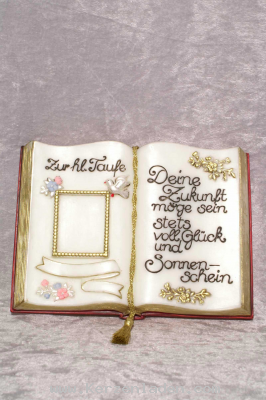 Zur hl. Taufe
Deine
Zukunft
möge sein
stets
voll Glück
und
Sonnen-
schein